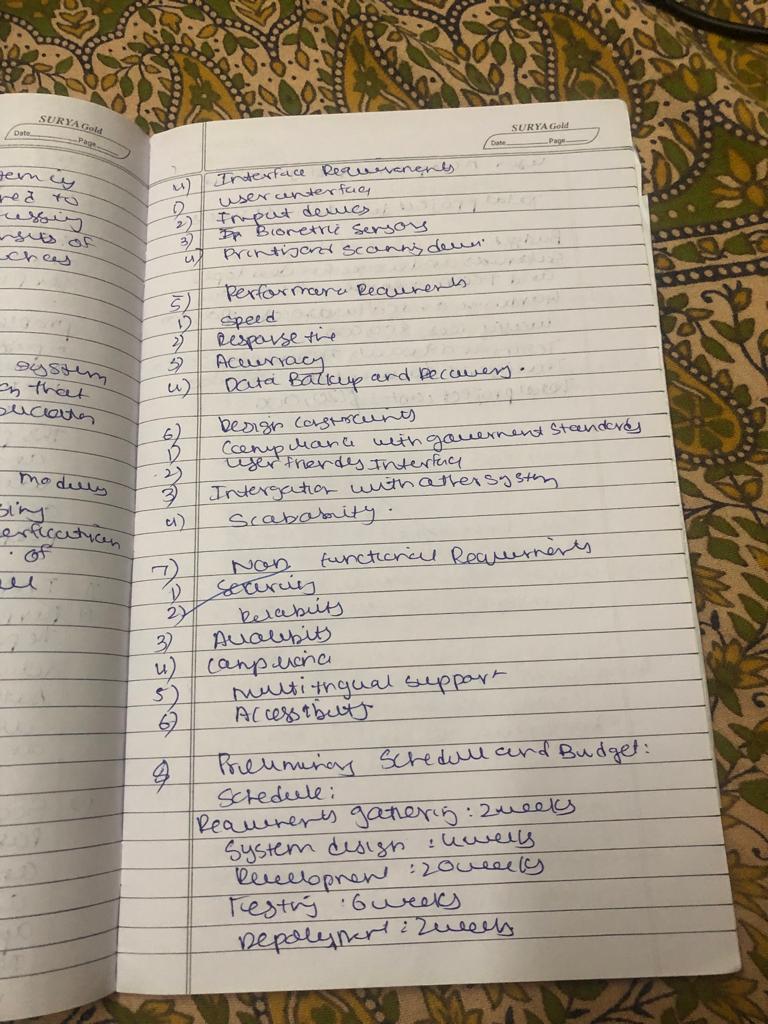 SURYA Gold
Date Page
temcy
red to
cussing
nsists of
uches
system
that
modules
erfication
of
SURYA Gold
Date Page
4) Interface Requirements
1) user interface
2) Input devices
3) Biometric Sensors
4) Printing and Scanning
5) Performance Requirements
1) Speed
2) Response time
3) Accuracy
4) Data Backup and Recovery.
6) Design constraints
1) Compliance with government Standards
2) user friendly Interface
3) Intergation with other System
4) Scabability.
7) Non functional Requirements
1) Security
2) Reliability
3) Availability
4) Compliance
5) Multilingual support
6) Accessibility
8 Preliminary Schedule and Budget:
Schedule:
Requirements gathering : 2 weeks
System design : 4 weeks
Development : 20 weeks
Testing : 6 weeks
Depolyment : 2 weeks